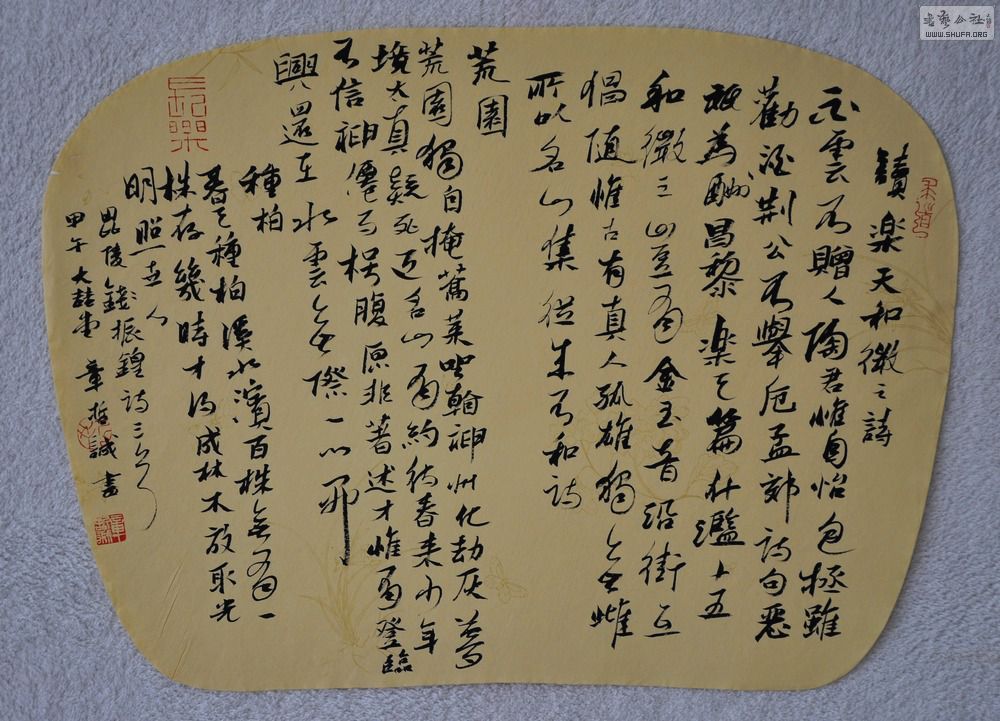 讀樂天和微之詩
白雲不贈人陶君惟自怡包極雖
勸酒荊公不舉卮孟郊詩句惡
為酬昌黎樂天篇什濫十五
和微之豈有金玉音沿街互
猖隨惟古有真人孤雄獨無雌
所以名山集從来不和詩
荒園
荒園獨自掩蒿萊神州化劫灰
境太真疑死近名山有約待春来少年
不信神僊不枵腹原非著述才惟有登臨
興還在水雲無際一心開
種柏
暮年種柏溪水濱百株無有一
株存幾時才得成林木放取光
明照世人
毘陵錢振鍠詩三首
甲午大囍堂章哲誠書
書藝公社
WWW.SHUFA.ORG